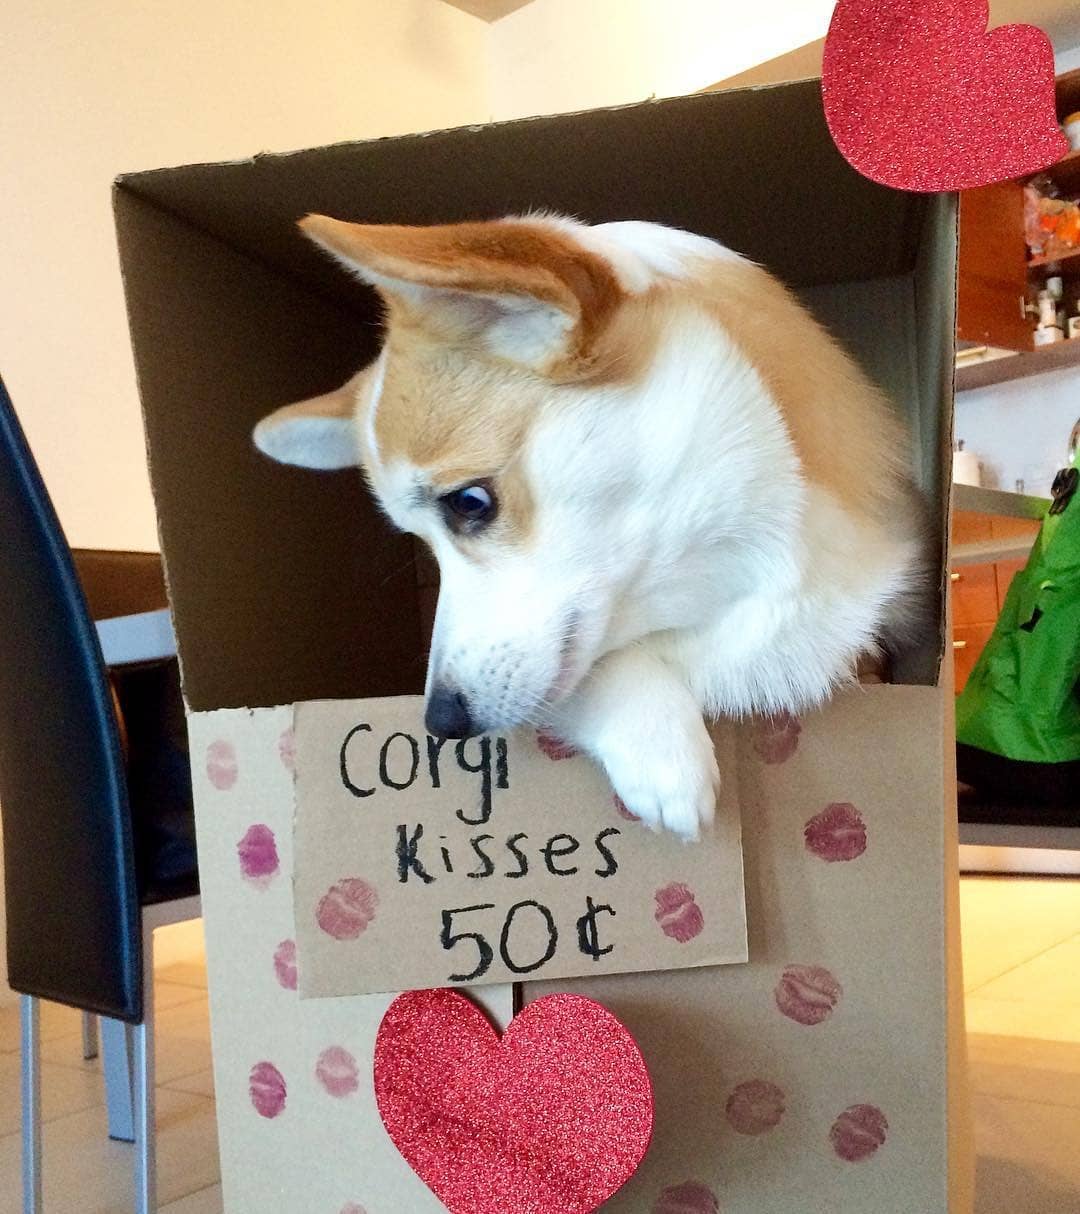 Corgi
Kisses
50¢